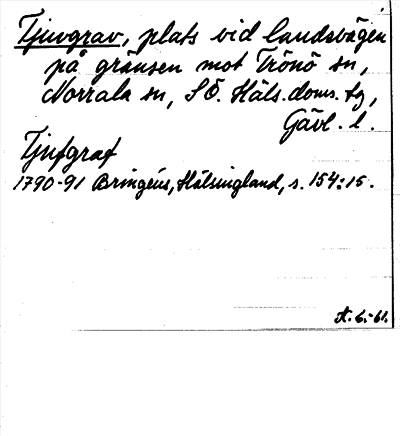 Tjuvgrav, plats vid landsvägen
på gränsen mot Trönö sn,
Norrala sn, SÖ. Häls. doms. tg,
Gävl. l.
Tjufgraf
1790-91 Bringéus, Hälsingland, s. 154:15.
A. 6.-61.